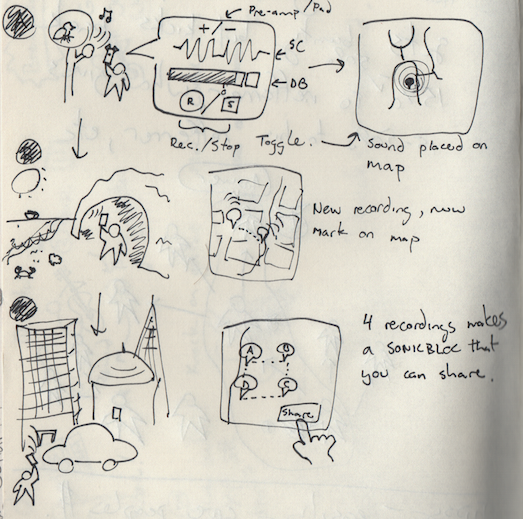 Pre-amp/Pad
+/-
SC
DB
R / S
Rec./Stop Toggle.
Sound placed on
map
New recording, now
mark on map
4 recordings makes
a SONICBLOC that
you can share.
A B
D C
Share